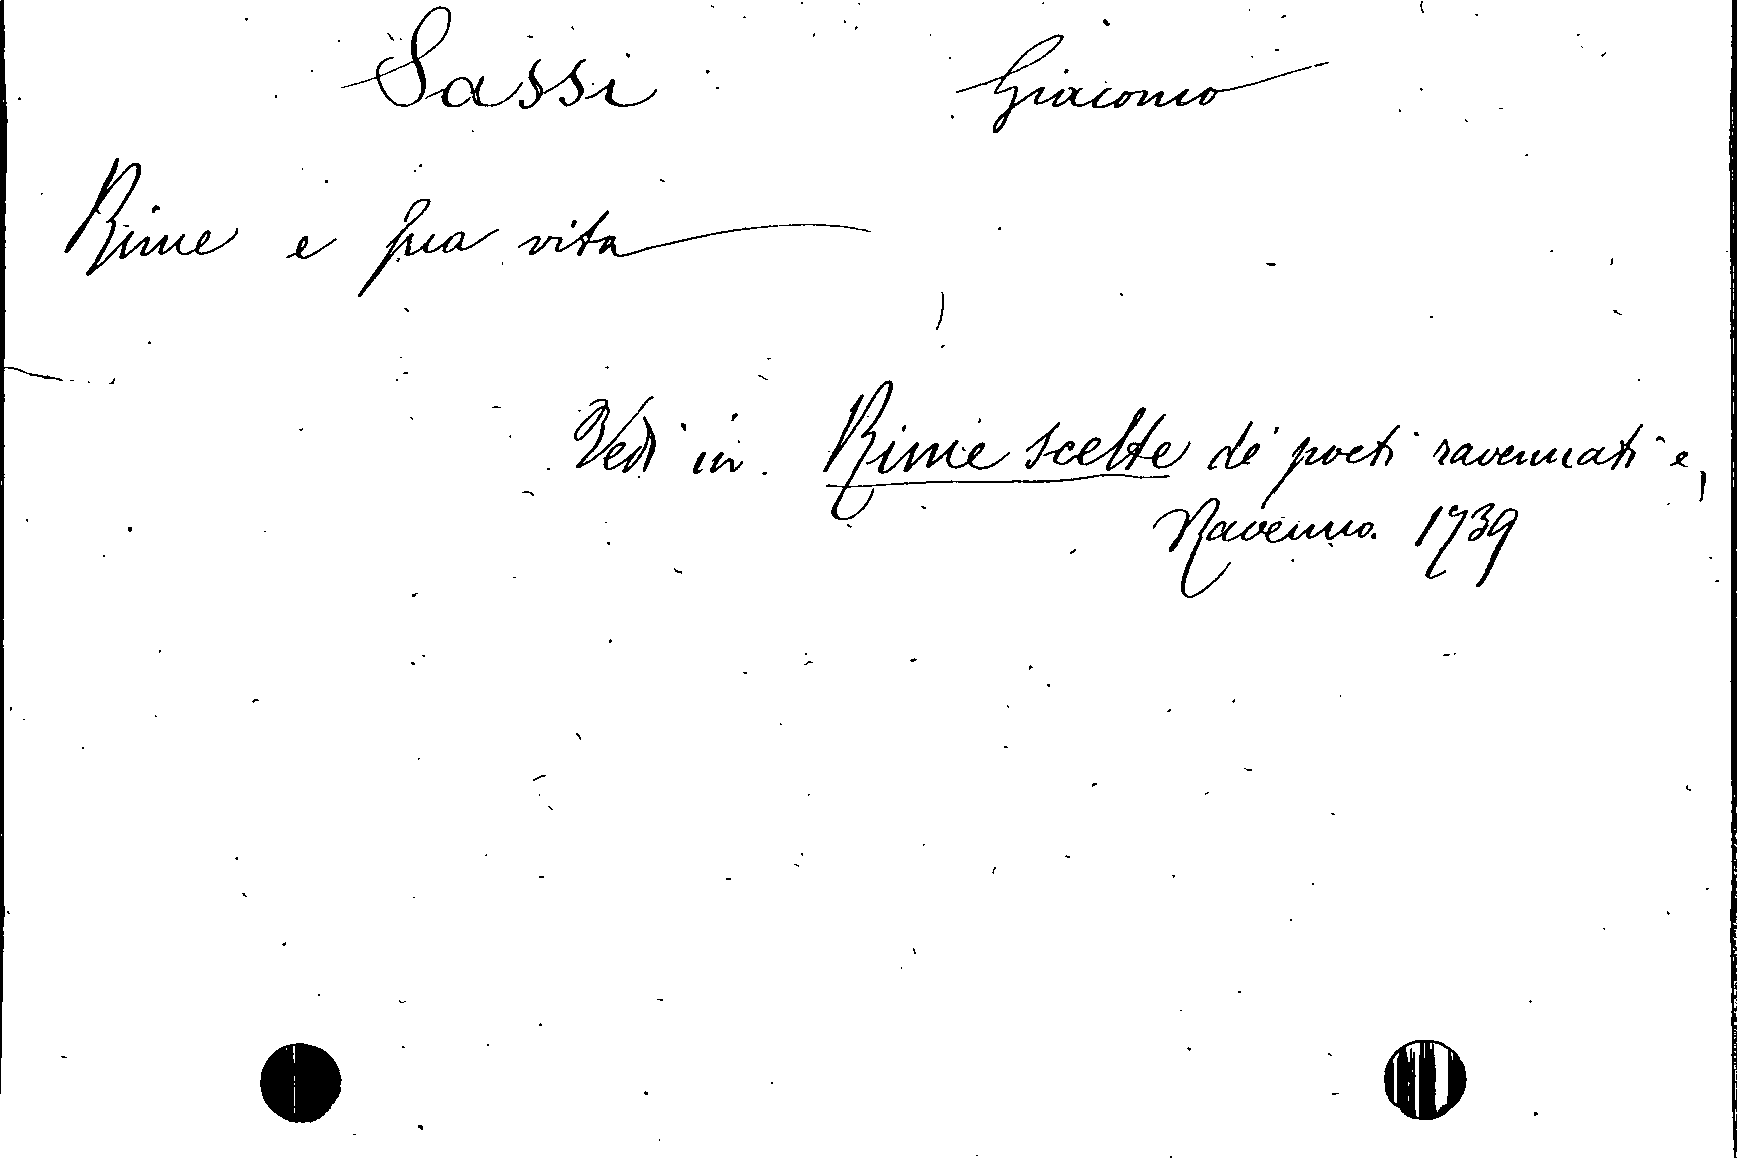 Sassi Giacomo
Rime e sua vita
Vedi in Rime scelte de' poeti ravennati e,
Ravenna. 1739